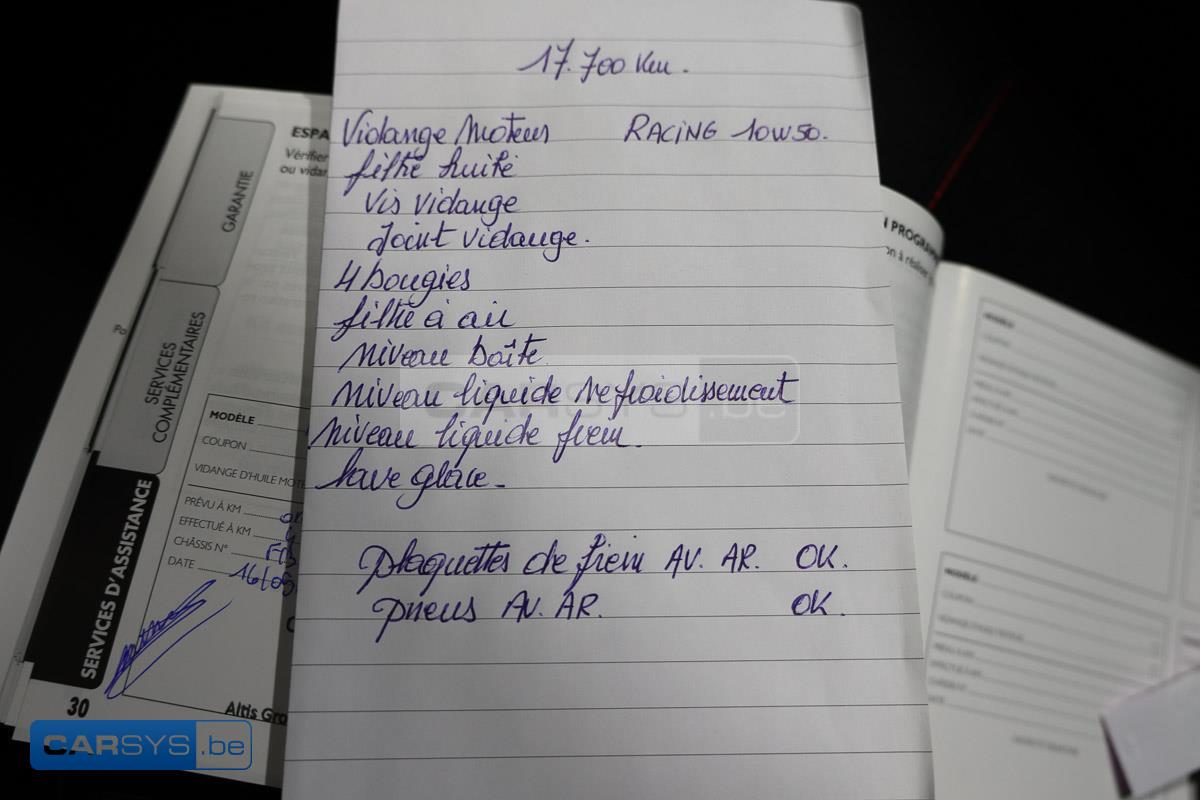 17.700 Km.
Vidange Moteur RACING 10W50.
filtre huile
Vis Vidange
Joint Vidange.
4 bougies
filtre à air
Niveau boîte
Niveau liquide Refroidissement
Niveau liquide frein.
Lave glace -
plaquettes de frein AV. AR. OK.
pneus AV. AR. OK.
ESPA
Vérifier
ou vidan
GARANTIE
SERVICES
COMPLÉMENTAIRES
SERVICES D'ASSISTANCE
MODÈLE
COUPON
VIDANGE D'HUILE MOTE
PRÉVU À KM
EFFECTUÉ À KM
CHÂSSIS N°
DATE 16/05
30
Altis Gro
N PROGRAM
on à réalise
MODÈLE
COUPON
MODÈLE
COUPON
CARSYS.be
CARSYS.be